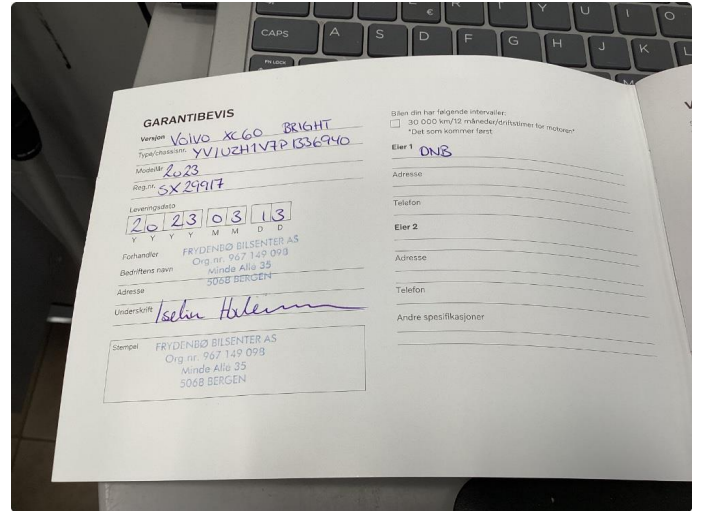 €
Y U I O
CAPS A S D F G H J K L
GARANTIBEVIS
Versjon Volvo XC60 BRIGHT
Type/chassisnr. YV1UZH1V7P1336940
Modellår 2023
Reg.nr. SX29917
Leveringsdato
2 0 2 3 0 3 1 3
Y Y Y Y M M D D
Forhandler FRYDENBØ BILSENTER AS
Org.nr. 967 149 098
Bedriftens navn Minde Alle 35
5068 BERGEN
Adresse
Underskrift Iselin
Stempel FRYDENBØ BILSENTER AS
Org.nr. 967 149 098
Minde Alle 35
5068 BERGEN
Bilen din har følgende intervaller:
30 000 km/12 måneder/driftstimer for motoren*
*Det som kommer først
Eier 1 DNB
Adresse
Telefon
Eier 2
Adresse
Telefon
Andre spesifikasjoner
V